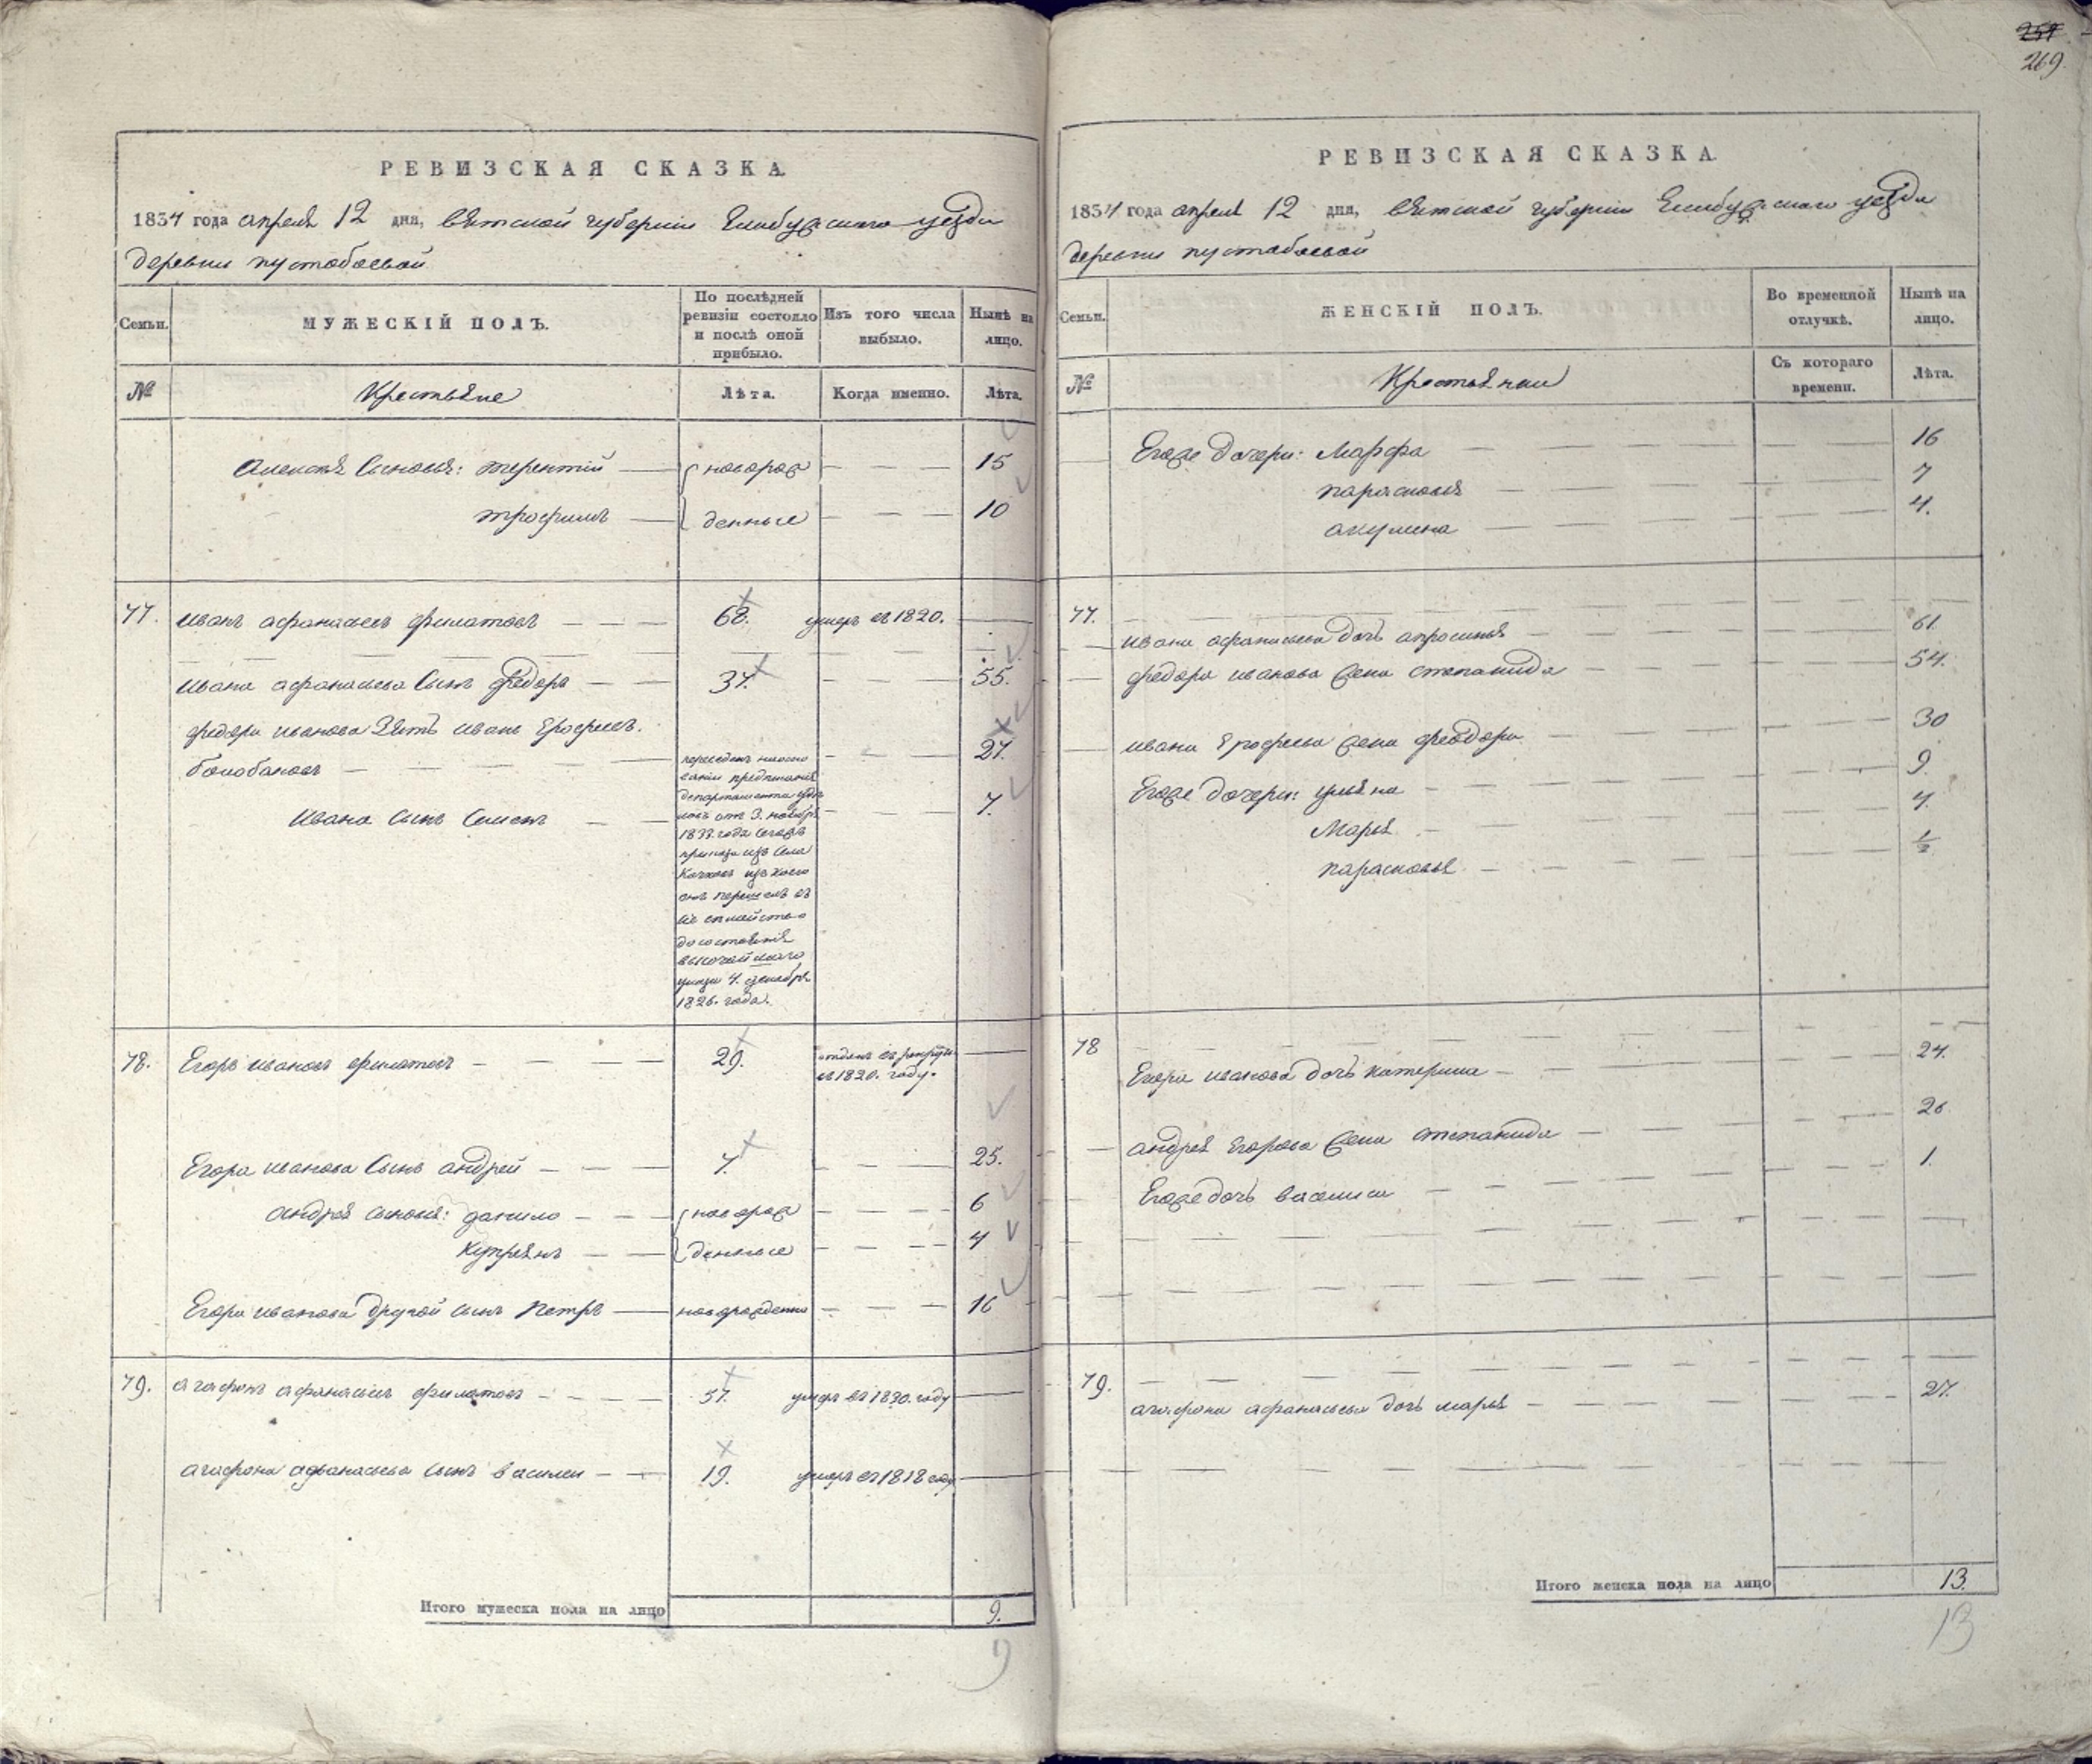 259
269.
РЕВИЗСКАЯ СКАЗКА.
1834 года апреля 12 дня, вятской губернiи Елабужскаго уезда
деревни пустобаевой
Семьи. МУЖЕСКIЙ ПОЛЪ. По послѣдней ревизiи состояло и послѣ оной прибыло. Изъ того числа выбыло. Нынѣ на лицо.
№ Крестьяне Лѣта. Когда именно. Лѣта.
Алексея Сыновья: терентiй новорож 15
трофимъ денные 10
77. иванъ афанасьевъ филатовъ 68. умеръ въ 1820.
ивана афанасьева Сынъ федоръ 37. 55.
федора иванова Зять иванъ Ерофеевъ.
болобановъ 27.
Ивана сынъ Семенъ 7.
предписанiя
департамента
от 3. ноября
1833 года
изъ Села
изъ коего
онъ перешелъ въ
семейство
до состоянiя
высочайшаго
указа 4. декабря
1826. года.
78. Егоръ ивановъ филатовъ 29. отданъ въ рекруты
въ 1820. году.
Егора иванова Сынъ андрей 7. 25.
андрея сыновья: данило новорож 6
Купреянъ денные 4
Егора иванова другой сынъ петръ новорожденны 16
79. агафонъ афанасьевъ филатовъ 57. умеръ въ 1830. году
агафона афанасьева сынъ василеи 19. умеръ въ 1818 году
Итого мужеска пола на лицо 9.
9
РЕВИЗСКАЯ СКАЗКА.
1834 года апреля 12 дня, вятской губернiи Елабужскаго уезда
деревни пустобаевой
Семьи. ЖЕНСКIЙ ПОЛЪ. Во временной отлучкѣ. Нынѣ на лицо.
№ Крестьянки Съ котораго времени. Лѣта.
Егоже дочери: Марфа 16
парасковья 7
акулина 4.
77.
ивана афанасьева дочь апросинья 61.
федора иванова жена степанида 54.
ивана Ерофеева жена феодора 30
Егоже дочери: ульяна 9.
Марья 4.
парасковья ½
78
Егора иванова дочь катерина 24.
андрея Егорова жена степанида 26
Егоже дочь василиса 1.
79.
агафона афанасьева дочь марья 27.
Итого женска пола на лицо 13.
13